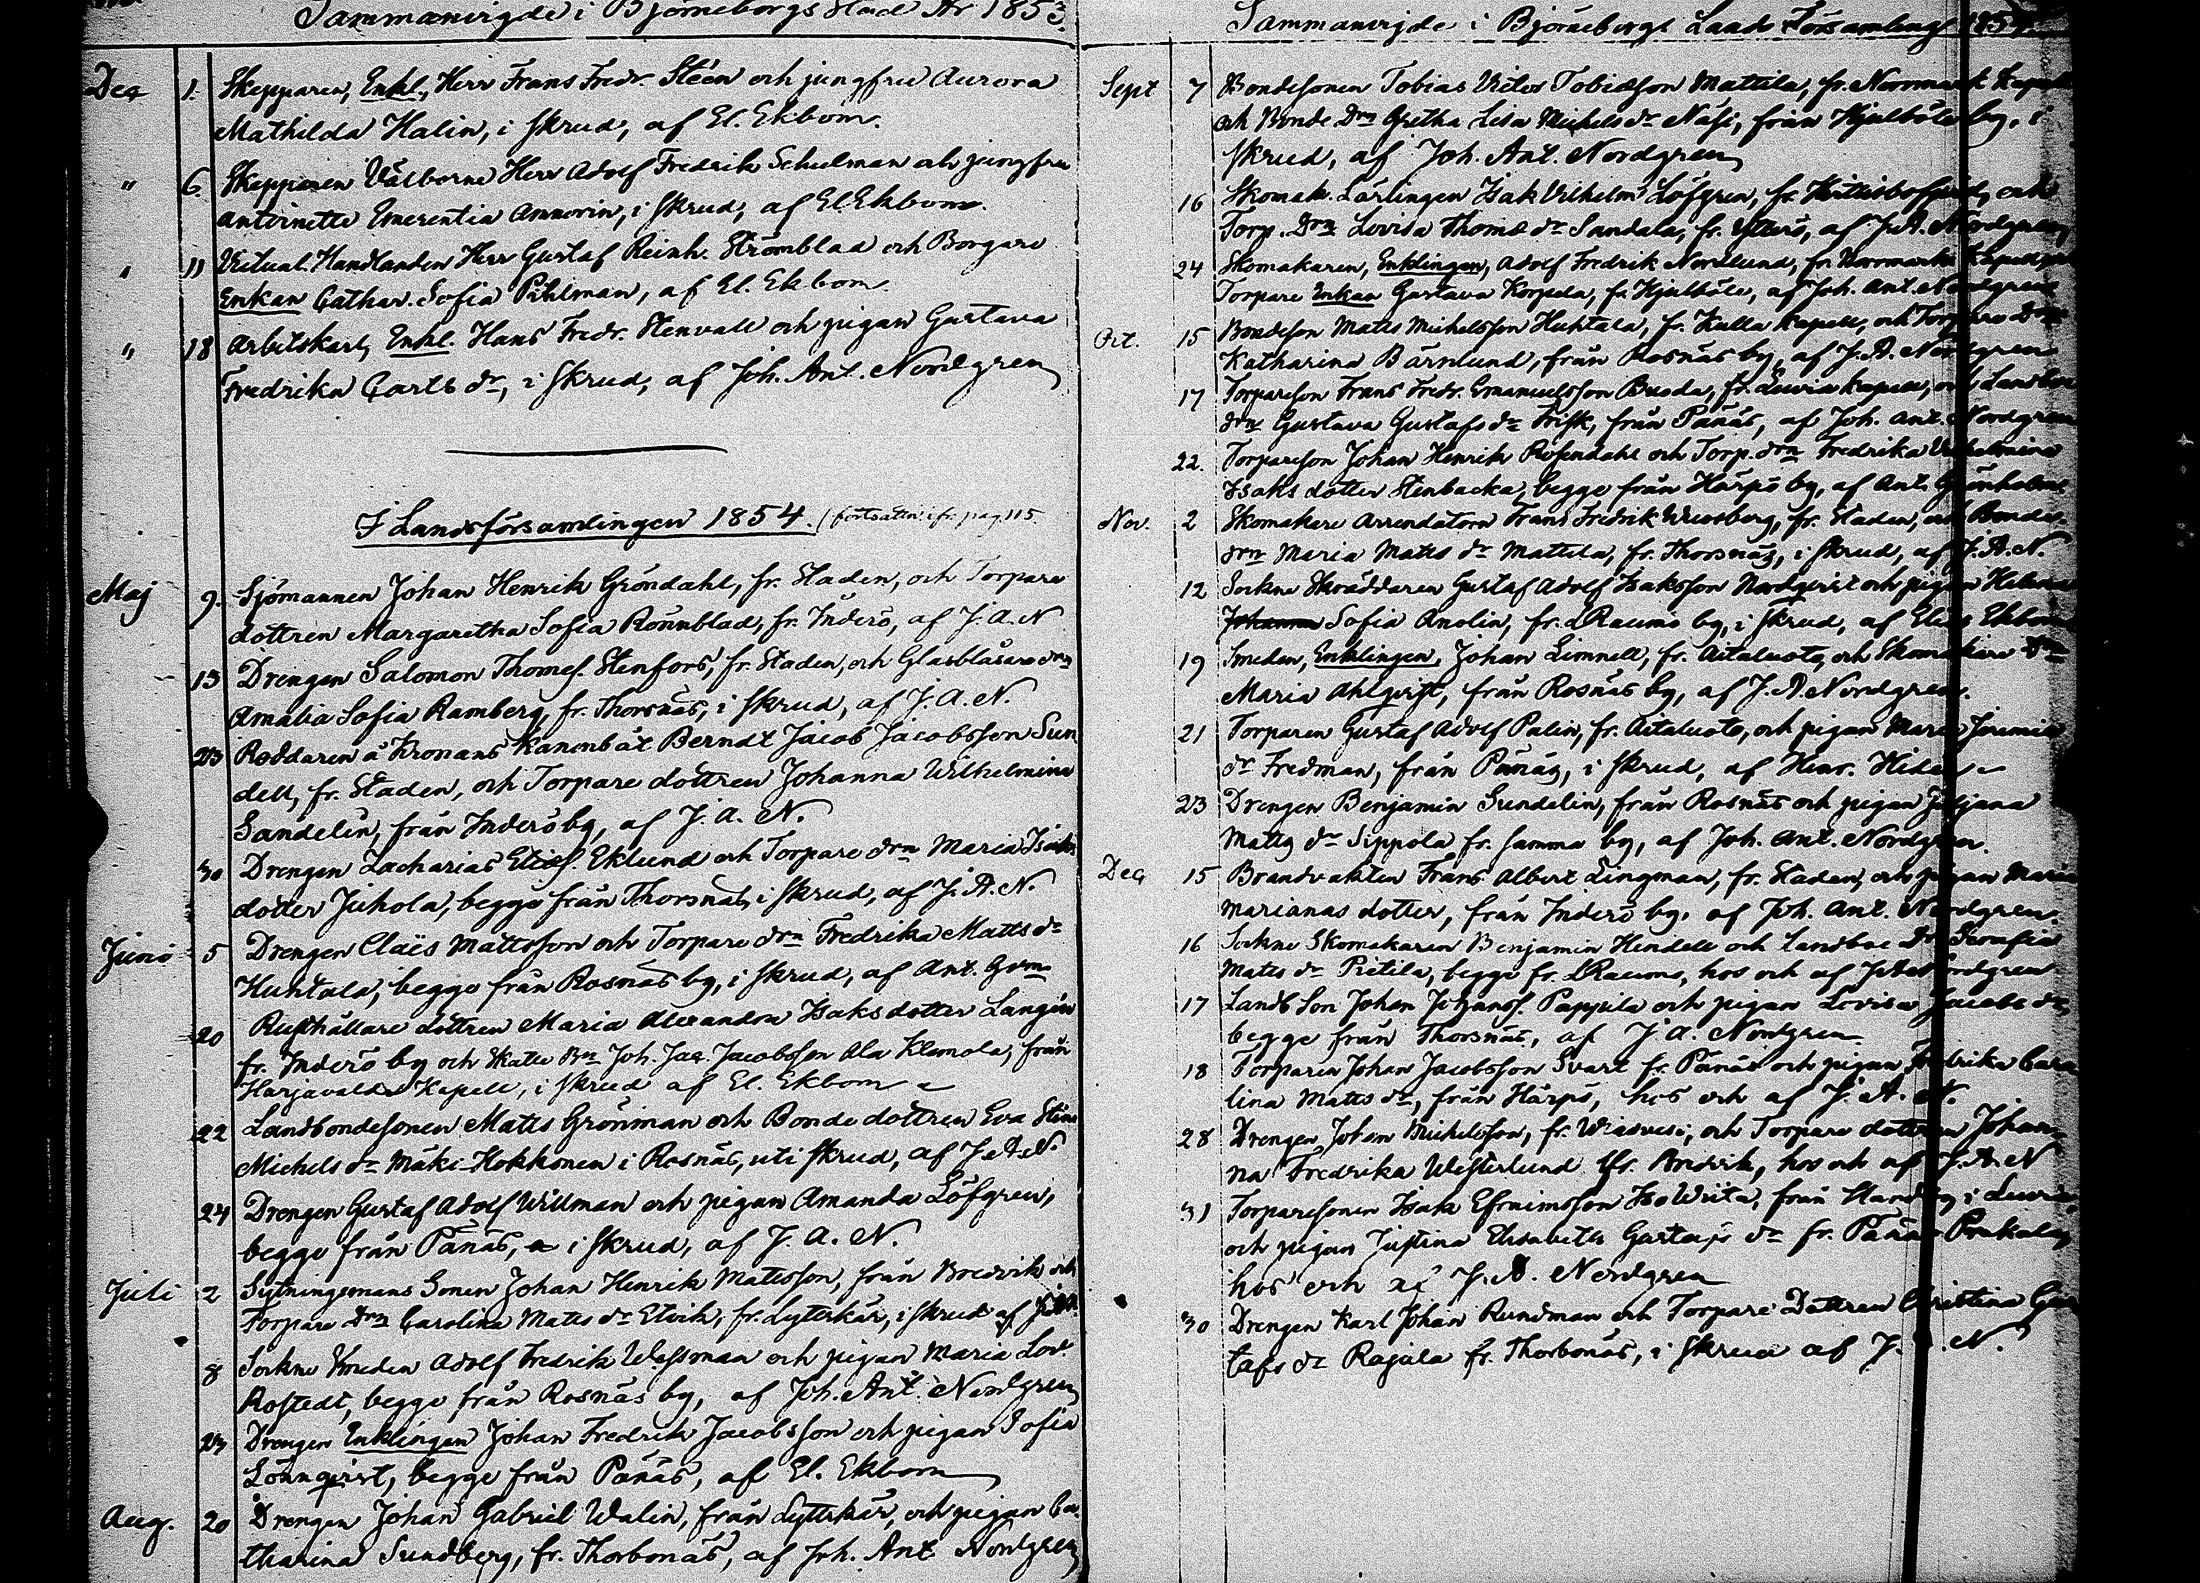 Sammanvigde i Björneborgs Stad År 1853.
Dec 1. Skepparen, Enkl., Herr Frans Fredr. Steen och jungfru Aurora
Mathilda Halin, i skrud, af El. Ekbom.
" 6 Skepparen Välborne Herr Adolf Fredrik Schulman och jungfru
Antoinette Emerentia Ammorin, i skrud, af El. Ekbom.
" 11 Victual. Handlanden Herr Gustaf Reinh. Strömblad och Borgare
Enkan Cathar. Sofia Pihlman, af El. Ekbom
" 18 Arbetskarl, Enkl. Hans Fredr. Stenvall och pigan Gustava
Fredrika Carls dr, i skrud, af Joh. Ant. Nordgren
I Landsförsamlingen 1854. (fortsattn. ifr. pag. 115
Maj 9. Sjömannen Johan Henrik Gröndahl, fr. Staden, och Torpare
dottren Margaretha Sofia Rönnblad, fr. Inderö, af J. A. N
13 Drengen Salomon Thomes. Stenfors, fr. Staden, och Glasblåsare drn
Amalia Sofia Ramberg, fr. Thorsnäs, i skrud, af J. A. N.
23 Roddaren å Kronans Kanonbåt Berndt Jacob Jacobsson Sun
dell, fr. Staden, och Torpare dottren Johanna Wilhelmina
Sandelin, från Inderö by, af J. A. N.
30 Drengen Zacharias Elias. Eklund och Torpare drn Maria Isaks
dotter Juhola, begge från Thorsnäs, i skrud, af J. A. N.
Juni 5 Drengen Claës Mattsson och Torpare drn Fredrika Matts dr
Huhtala, begge från Rosnäs by, i skrud, af Ant. Grm
20 Rusthållare dottren Maria Alexandra Isaks dotter Langén
fr. Inderö by och Skatte Bn Joh. Jac. Jacobsson Ala Klemola, från
Harjavalda Kapell, i skrud af El. Ekbom
22 Landbondesonen Matts Grönman och Bonde dottren Eva Stina
Michels dr Mäki-Hokkonen i Rosnäs, uti skrud, af J. A. N.
24 Drengen Gustaf Adolf Willman och pigan Amanda Löfgren,
begge från Pånäs, i skrud, af J. A. N.
Juli 2 Sytningsmans Sonen Johan Henrik Mattsson, från Bredvik och
Torpare Drn Carolina Matts dr Elvik, fr. Lyttskär, i skrud af
8 Sockne Smeden Adolf Fredrik Wessman och pigan Maria Lov.
Rostedt, begge från Rosnäs by, af Joh. Ant. Nordgren
23 Drengen Enklingen Johan Fredrik Jacobsson och pigan Sofia
Lönnqvist, begge från Pånäs, af El. Ekbom
Aug. 20 Drengen Johan Gabriel Walin, från Lyttskär, och pigan Ca-
tharina Sundberg, fr. Thorbonäs, af Joh. Ant Nordgren
Sammanvigde i Björneborgs Lands Församling 1854.
Sept 7 Bondesonen Tobias Victor Tobiasson Mattila, fr. Norrmark Kapell
och Bonde Drn Gretha Lisa Michels dr Näsi, från Hjulböle by, i
skrud, af Joh. Ant. Nordgren
16 Skomak. Lärlingen Isak Vilhelm Löfgren, fr. och
Torp. Drn Lovisa Thomæ dr Sandala, fr. Ytterö, af J. A. Nordgren
24 Skomakaren, Enklingen, Adolf Fredrik Nordlund, fr. Norrmarks Kapell,
Torpare Enkan Gustava Korpela, fr. Hjulböle, af Joh. Ant. Nordgren
Oct. 15 Bondeson Matts Michelsson Huhtala, fr. Kulla Kapell, och Torpare Drn
Katharina Bärnlund, från Rosnäs by, af J. A. Nordgren
17 Torpareson Frans Fredr. Emanuelsson Busda, fr. Luvia Kapell, och Landbo
drn Gustava Gustafs dr Frisk, från Pånäs, af Joh. Ant. Nordgren
22. Torpareson Johan Henrik Rosendahl och Torp. drn Fredrika Vilhelmina
Isaks dotter Stenbacka, begge från Härpö by, af Ant. Grönholm
Nov. 2 Skomakare Arrendatorn Frans Fredrik Wessberg, fr. Staden, och Bonde-
drn Maria Matts dr Mattila, fr. Thorsnäs, i skrud, af J. A. N.
12 Sockne Skräddaren Gustaf Adolf Isaksson Nordqvist och pigan Helena
Johanna Sofia Anolin, fr. LRaumo by, i skrud, af Elias Ekbom
19 Smeden, Enklingen, Johan Limnell, fr. Aitaluoto, och Skomakare Drn
Maria Ahlqvist, från Rosnäs by, af J. A. Nordgren.
21 Torparen Gustaf Adolf Palin, fr. Aitaluoto, och pigan Maria Jeremiæ
dr Fredman, från Pånäs, i skrud, af Henr. Hidén
23 Drengen Benjamin Sundelin, från Rosnäs och pigan Juljana
Matts dr Sippola fr. Lamma by, af Joh. Ant. Nordgren.
Dec 15 Brandvakten Frans Albert Lingman, fr. Staden, och pigan Maria
Marianas dotter, från Inderö by, af Joh. Ant. Nordgren.
16 Sockne Skomakaren Benjamin Hendell och Landboe Dr Serafia
Matts dr Pietila, begge fr. LRaumo, hos och af J. A. Nordgren
17 Landb Son Johan Johanss. Pappila och pigan Lovisa Jacobs dr,
begge från Thorsnäs, af J. A. Nordgren
18 Torparen Johan Jacobsson Svart fr. Pånäs och pigan Fredrika Caro
lina Matts dr, från Härpö, hos och af J. A. N.
28 Drengen Johan Michelsson, fr. Wiasvesi, och Torpare dottren Johan-
na Fredrika Westerlund fr. Bredvik, hos och af J. A. N
31 Torparesonen Isak Efraimsson Iso Writa, från by i Luvia,
och pigan Justina Elisabeth Gustafs dr fr. Pånäs
hos och af J. A. Nordgren
30 Drengen Karl Johan Rundman och Torpare Dottren Christina Gus
tafs dr Rajala fr. Thorbonäs, i skrud af J. A. N.